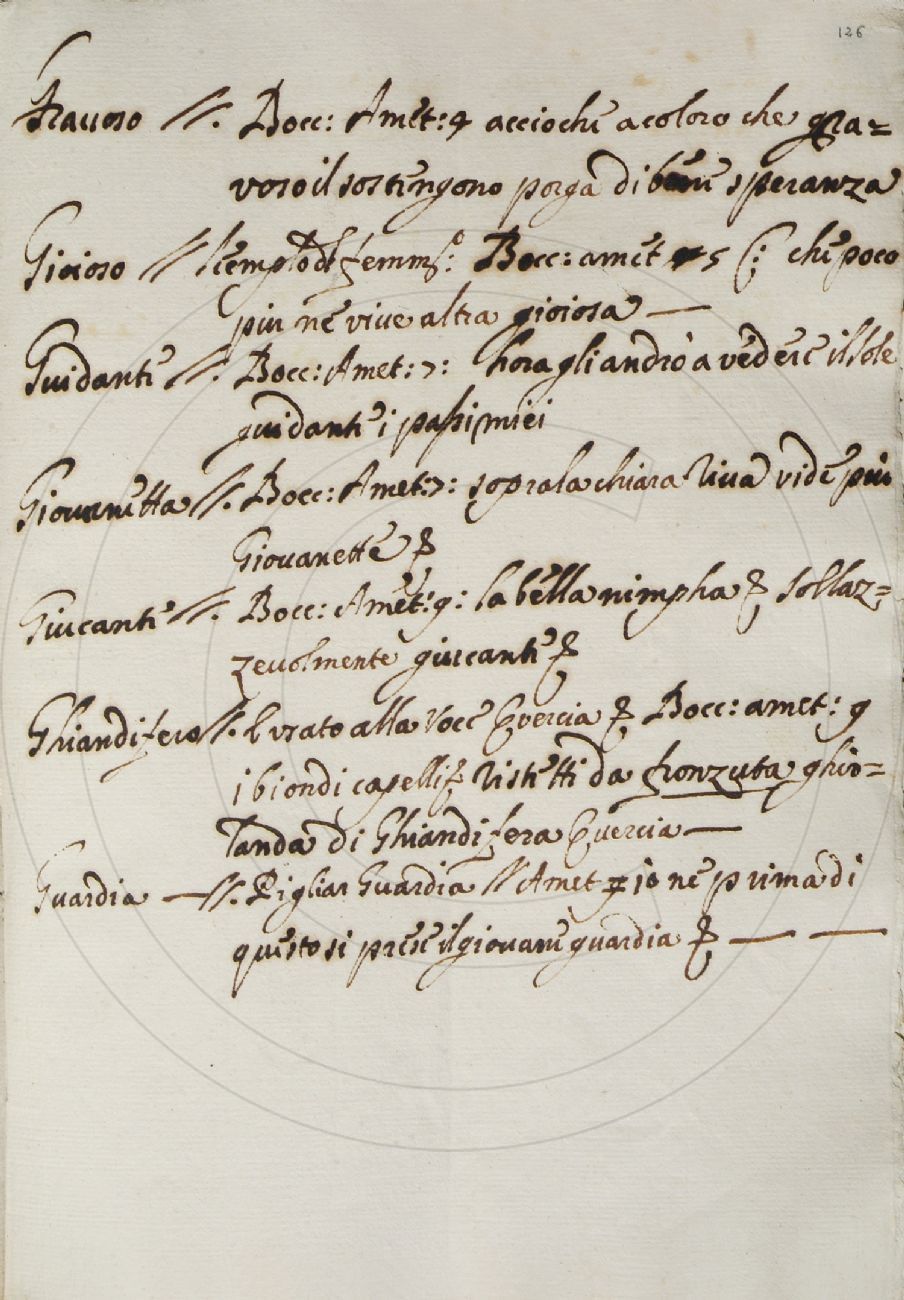 126
Gravoso //. Bocc: Amet: 4 acciochè a coloro che gra=
voso il sostengono porga di bene speranza
Gioioso // l'empio Bocc: amet 5 che poco
piu ne vive altra gioiosa —
Guidante //. Bocc: Amet: 7: hora gli andrò a vedere il sole
guidante i passi miei
Giovanetta //. Bocc: Amet: 7: sopra la chiara riva vide piu
Giovanette
Giucante //. Bocc: Amet: 9: la bella nimpha sollaz=
zevolmente giucante
Ghiandifero //. usato alla voce Quercia Bocc: amet: 9
i biondi capelli ristretti da fronzuta ghir=
landa di Ghiandifera Quercia —
Guardia — //. Pigliar Guardia // Amet 10 ne prima di
questo si prese il giovane guardia — —